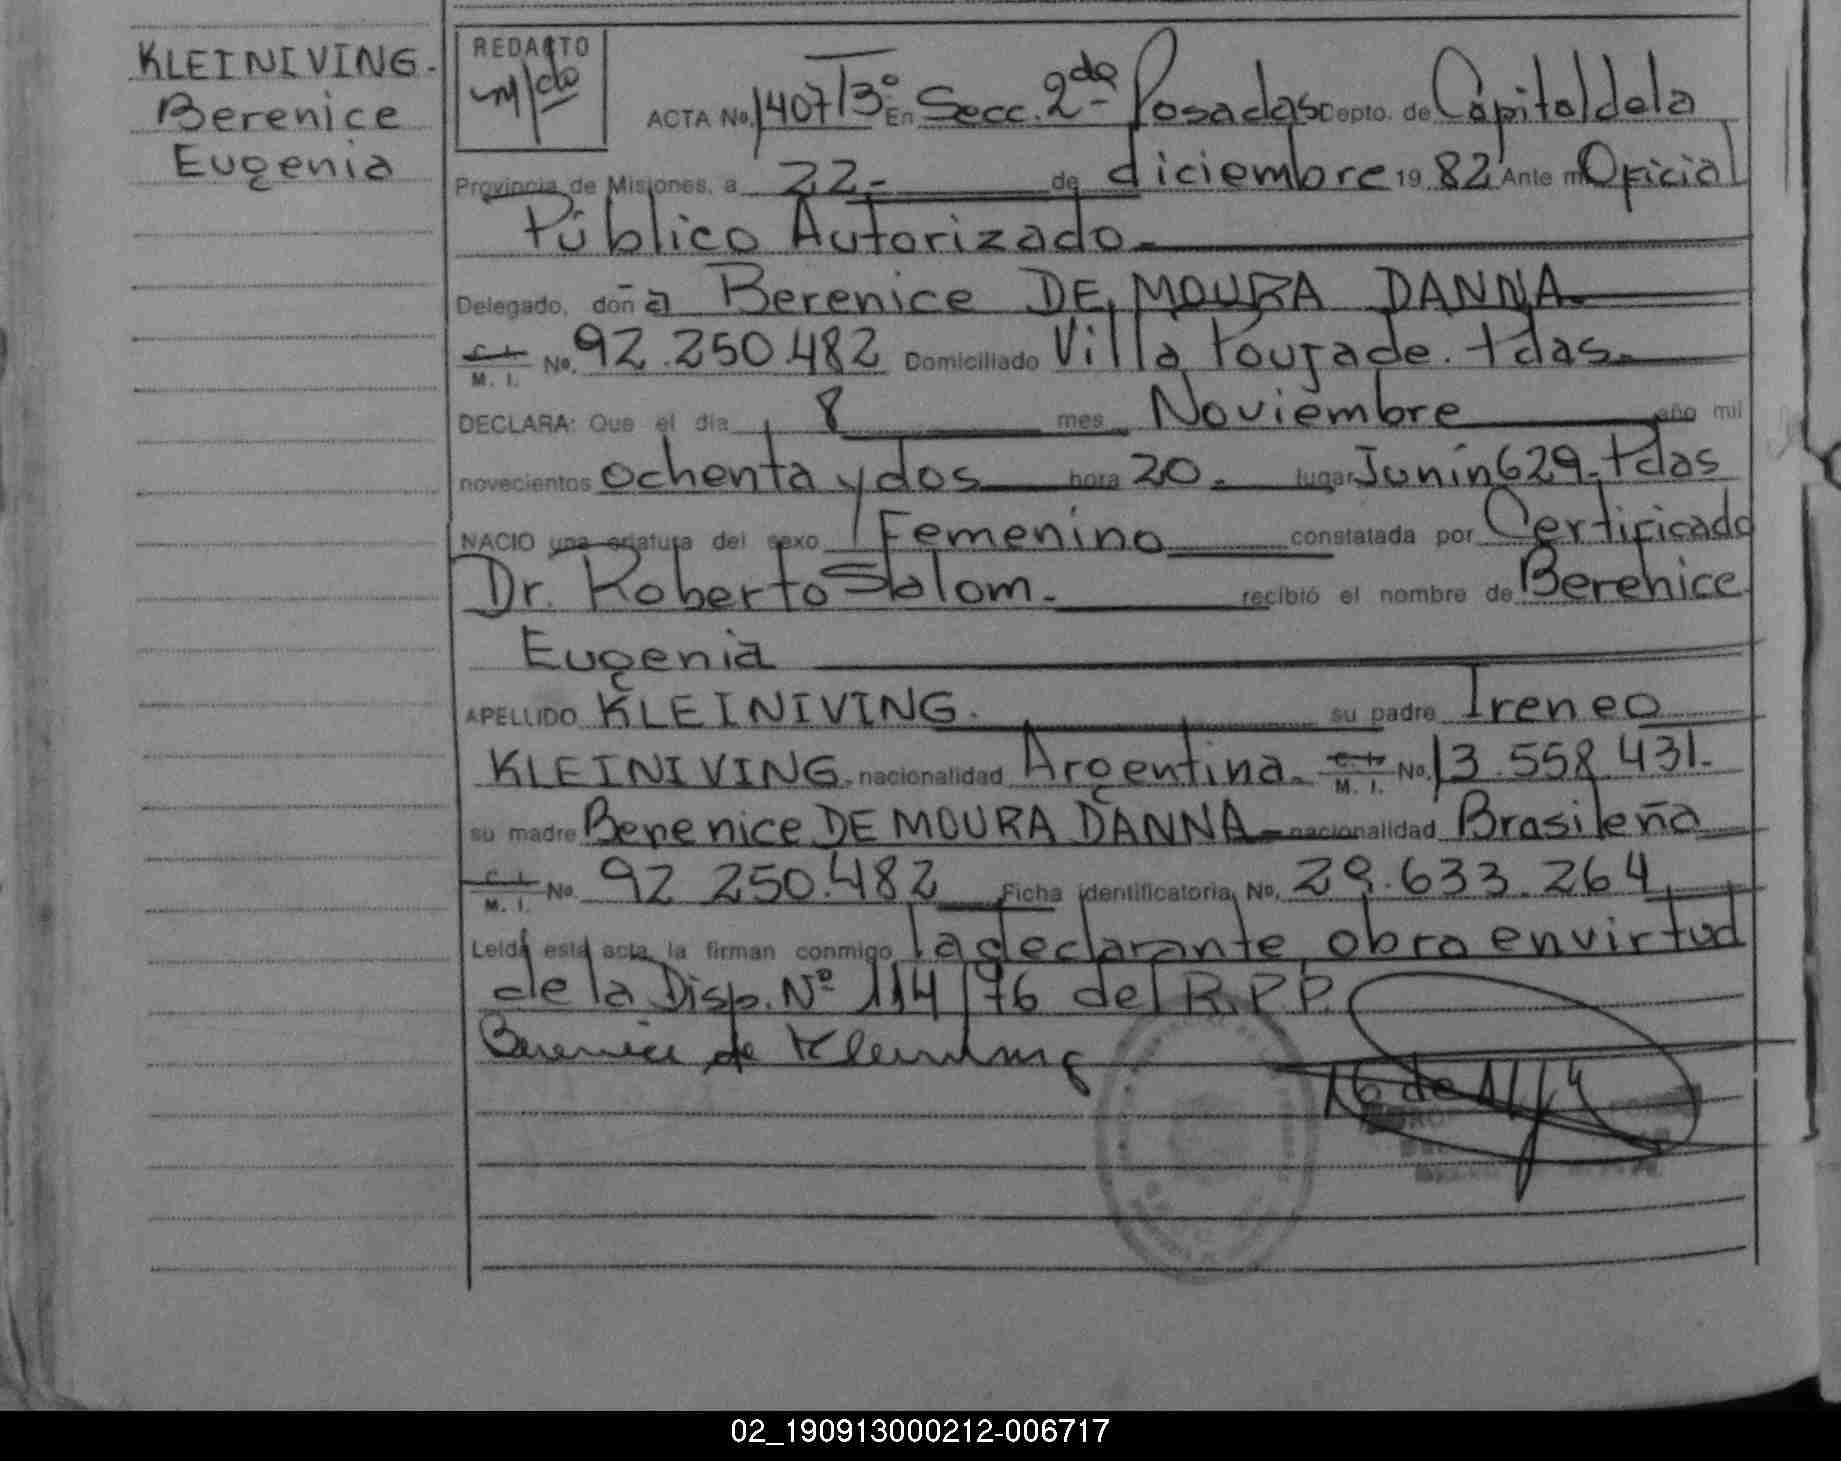 KLEINIVING.
Berenice
Eugenia
REDACTO
ACTA No. 1407/3° En Secc. 2da Posadas Depto. de Capital de la
Provincia de Misiones, a 22- de diciembre 19 82 Ante mi Oficial
Público Autorizado.-
Delegado, doña Berenice DE MOURA DANNA.
C. I. M. I. No. 92.250.482 Domiciliado Villa Poujade. Pdas.
DECLARA: Que el día 8 mes Noviembre año mil
novecientos ochenta y dos hora 20. lugar Junin 629. Pdas
NACIO una criatura del sexo Femenino constatada por Certificado
Dr. Roberto Slalom. recibió el nombre de Berenice
Eugenia
APELLIDO KLEINIVING. su padre Ireneo
KLEINIVING. nacionalidad Argentina. C. I. M. I. No. 13.558.431.
su madre Berenice DE MOURA DANNA nacionalidad Brasileña
C. I. M. I. No. 92 250.482 Ficha identificatoria No. 29.633.264
Leida esta acta, la firman conmigo la declarante, obra en virtud
de la Disp. Nº 114/76 del R.P.P.
Berenice de Kleiniving
02_190913000212-006717